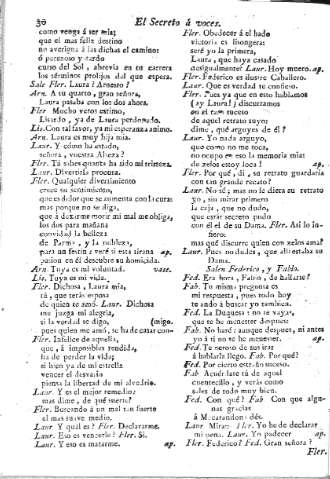 30 El Secreto á voces.
como venga á ser mia;
que el mas feliz destino
no averigua si las caminos
ó perezoso y tardo
curso del Sol, abrevia en su carrera
los términos prolijos del que espera.
Sale Fler. Laura? Arnesto?
Arn. A su quarto, gran señora,
Laura pasaba con los dos ahora.
Fler. Mucho veros estimo,
Lisardo, ya de Laura perdonado.
Lis. Con tal favor, ya mi esperanza animo.
Arn. Laura es muy hija mia.
Laur. Y cómo ha estado,
señora, vuestra Alteza?
Fler. Tú sabes quanta ha sido mi tristeza.
Laur. Divertirla procura.
Fler. Qualquier divertimiento
crece su sentimiento,
que es dolor que se aumenta con la cura:
mas porque no se diga,
que á dexarme morir mi mal me obliga,
los dos para mañana
convidad la belleza
de Parma, y la nobleza,
para un festin á ver si esta tirana ap.
pasion en él descubre su homicida.
Arn. Tuya es mi voluntad. vase.
Lis. Tuya es mi vida.
Fler. Dichosa, Laura mia,
tú, que serás esposa
de quien te amó. Laur. Dichosa
me juzga mi alegria,
si la verdad te digo, (migo.
pues quien me amó, se ha de casar con-
Fler. Infelice de aquella,
que, á imposibles rendida,
ha de perder la vida;
si bien ya de mi estrella
vencer el desvario
piensa la libertad de mi alvedrio.
Laur. Y es el mejor remedio:
mas dime, de qué suerte?
Fler. Buscando á un mal tan fuerte
el mas suave medio.
Laur. Y qual es? Fler. Declararme.
Laur. Eso es vencerle? Fler. Si.
Laur. Y eso es matarme. ap.
Fler. Obedecer á el hado
victoria es lisongera:
seré yo la primera,
Laura, que haya casado
desigualmente? Laur. Hoy muero. ap.
Fler. Federico es ilustre Caballero.
Laur. Que es verdad te confieso.
Fler. Pues ya que en esto hablamos
(ay Laura!) discurramos
en el suceso
de aquel retrato suyo
dime, qué arguyes de él?
Laur. Yo nada arguyo,
que como no me toca,
no ocupo en eso la memoria mia:
de zelos estoy loca! ap.
Fler. Por qué, di, su retrato guardaria
con tan grande recato?
Laur. No sé; mas no le diera su retrato
yo, sin mirar primero
la caxa, que no dudo,
que estár secreto pudo
con él el de su Dama. Fler. Asi lo infiero:
mas qué discurre quien con zelos ama?
Laur. Pues no dudes, que allí estaba su
Dama.
Salen Federico, y Fabio.
Fed. Era hora, Fabio, de hallarte?
Fab. Tu misma pregunta es
mi respuesta, pues todo hoy
te ando á buscar yo tambien.
Fed. La Duquesa: no te vayas,
que te he menester despues.
Fab. No haré: aunque despues, ni antes
yo á ti no te he menester. ap.
Fed. Te
á hablarla llego. Fab. Por qué?
Fed. Por cierto suceso.
Fab. Acuerdate tú de aquel
cuentecillo, y verás como
sales de todo muy bien.
Fed. Con qué? Fab. Con que algunas gracias
á Macarandon dés.
Laur. Mira: Fler. Yo he de declarar
mi pena. Laur. Yo padecer ap.
Fler. Federico? Fed. Gran señora?
Fler.